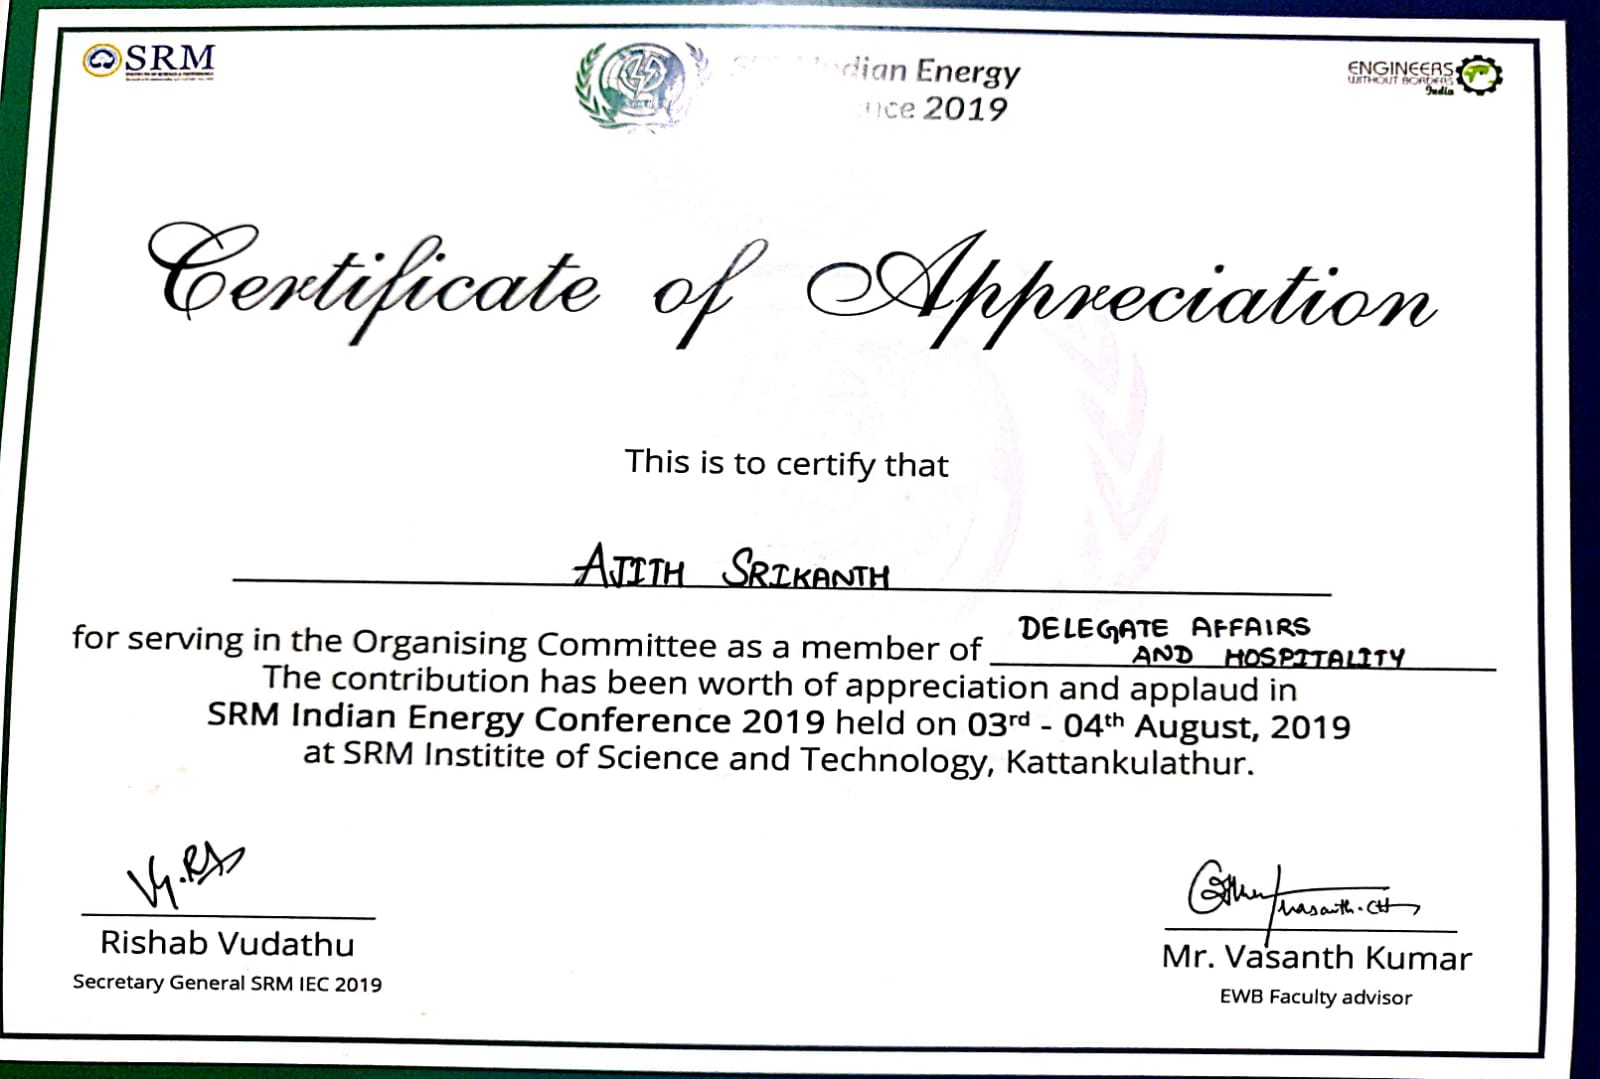 SRM
ENGINEERS
WITHOUT BORDERS
India
Indian Energy
2019
Certificate of Appreciation
This is to certify that
AJITH SRIKANTH
for serving in the Organising Committee as a member of DELEGATE AFFAIRS
AND HOSPITALITY
The contribution has been worth of appreciation and applaud in
SRM Indian Energy Conference 2019 held on 03rd - 04th August, 2019
at SRM Institite of Science and Technology, Kattankulathur.
Rishab Vudathu
Secretary General SRM IEC 2019
Mr. Vasanth Kumar
EWB Faculty advisor